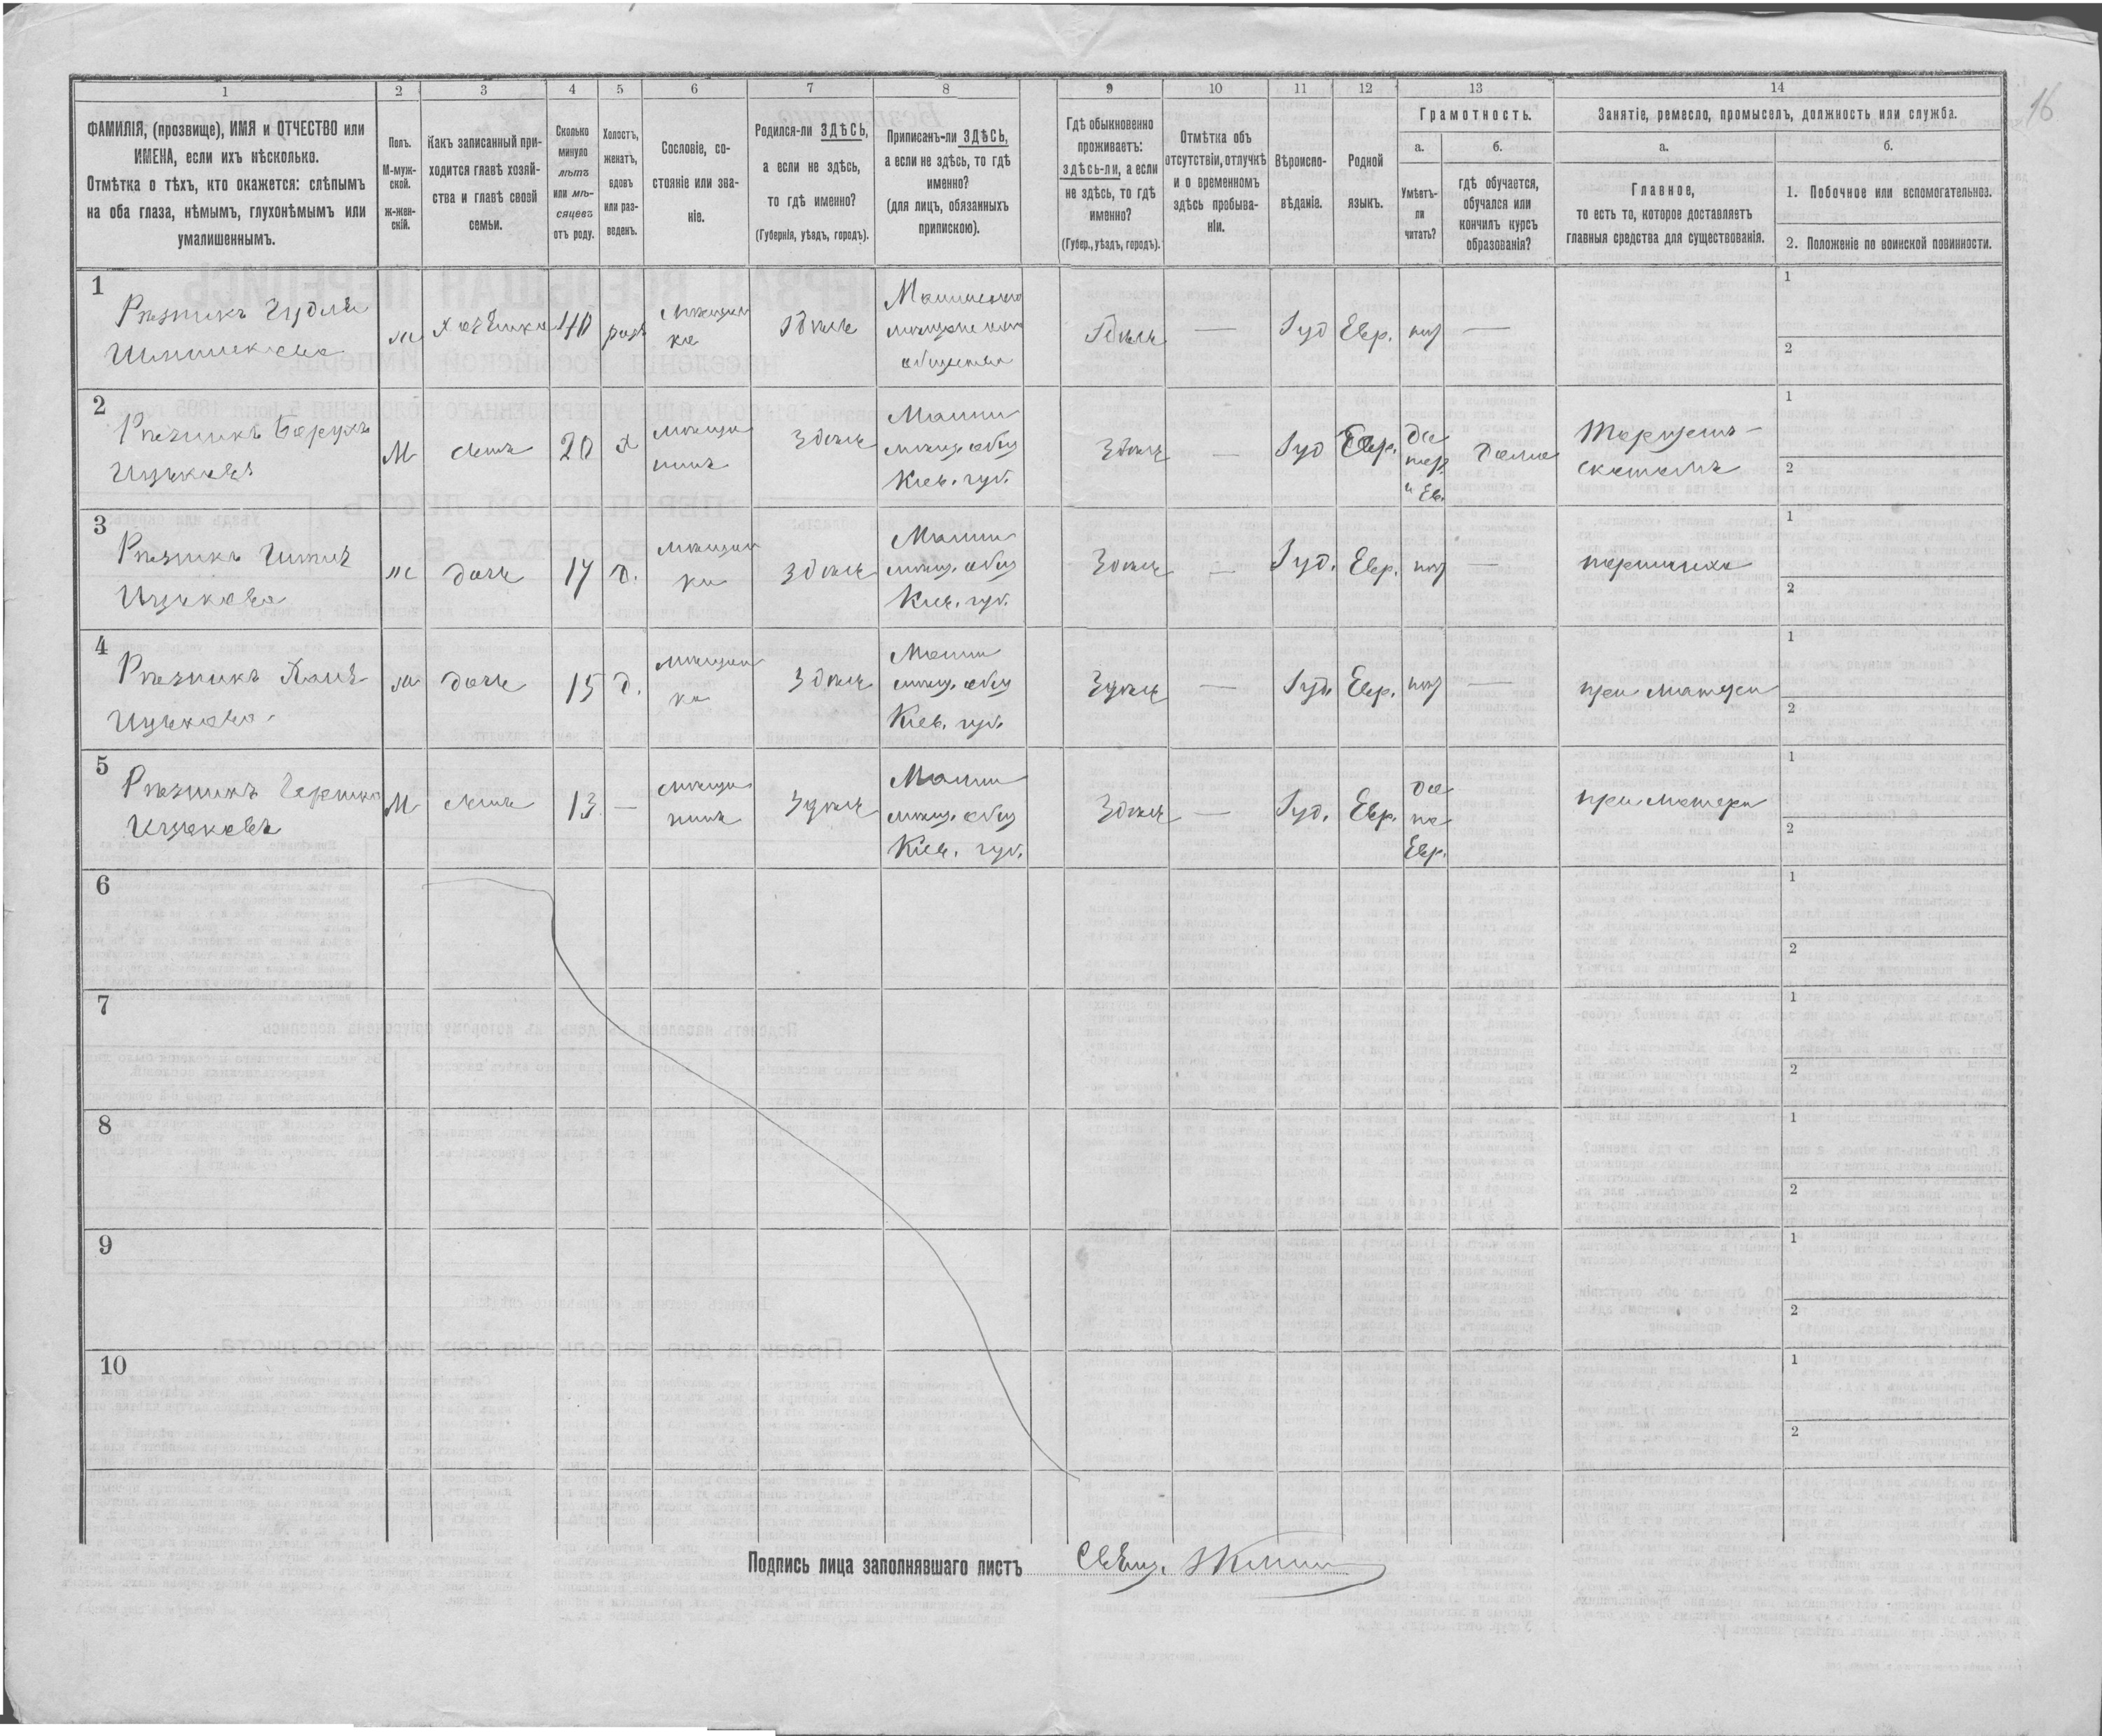 16
1 2 3 4 5 6 7 8 9 10 11 12 13 14
ФАМИЛІЯ, (прозвище), ИМЯ и ОТЧЕСТВО или
ИМЕНА, если ихъ нѣсколько.
Отмѣтка о тѣхъ, кто окажется: слѣпымъ
на оба глаза, нѣмымъ, глухонѣмымъ или
умалишеннымъ.
Полъ.
М-муж-
ской.
Ж-жен-
скій.
Какъ записанный при-
ходится главѣ хозяй-
ства и главѣ своей
семьи.
Сколько
минуло
лѣтъ
или мѣ-
сяцевъ
отъ роду.
Холостъ,
женатъ,
вдовъ
или раз-
веденъ.
Сословіе, со-
стояніе или зва-
ніе.
Родился-ли ЗДѢСЬ,
а если не здѣсь,
то гдѣ именно?
(Губернія, уѣздъ, городъ).
Приписанъ-ли ЗДѢСЬ,
а если не здѣсь, то гдѣ
именно?
(для лицъ, обязанныхъ
припискою).
Гдѣ обыкновенно
проживаетъ:
здѣсь-ли, а если
не здѣсь, то гдѣ
именно?
(Губер., уѣздъ, городъ).
Отмѣтка объ
отсутствіи, отлучкѣ
и о временномъ
здѣсь пребыва-
ніи.
Вѣроиспо-
вѣданіе.
Родной
языкъ.
Грамотность.
а.
Умѣетъ-
ли
читать?
б.
гдѣ обучается,
обучался или
кончилъ курсъ
образованія?
Занятіе, ремесло, промыселъ, должность или служба.
а.
Главное,
то есть то, которое доставляетъ
главныя средства для существованія.
б.
1. Побочное или вспомогательное.
2. Положеніе по воинской повинности.
1
Рѣзникъ
ж
хозяйка
40
Мѣщан
ка
здѣсь
мѣщанскаго
общества
здѣсь
—
Іуд
Евр.
нѣт
—
1
2
2
Рѣзникъ Борухъ
Ицьковъ
М
сынъ
20
х
мѣщан
инъ
Здѣсь
мѣщ. общ
Кіев. губ.
Здѣсь
—
Іуд
Евр.
Да
и Ев.
дома
Торгуетъ
скотомъ
1
2
3
Рѣзникъ
Ицькова
ж
дочь
17
д.
мѣщан
ка
Здѣсь
мѣщ. общ
Кіев. губ.
Здѣсь
—
Іуд.
Евр.
нѣт
—
портниха
1
2
4
Рѣзникъ
Ицькова
ж
дочь
15
д.
мѣщан
ка
Здѣсь
мѣщ. общ
Кіев. губ.
Здѣсь
—
Іуд.
Евр.
нѣт
—
при матери
1
2
5
Рѣзникъ
Ицьковъ
М
сынъ
13
—
мѣщан
инъ
Здѣсь
мѣщ. общ
Кіев. губ.
Здѣсь
—
Іуд.
Евр.
да
по
Евр.
при матери
1
2
6
1
2
7
1
2
8
1
2
9
1
2
10
1
2
Подпись лица заполнявшаго листъ